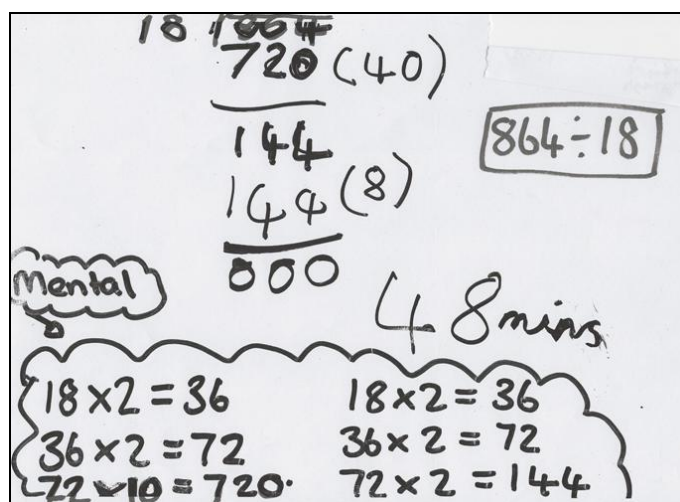 18
720 (40)
864÷18
144
144 (8)
000
Mental
48 mins
18×2=36
36×2=72
72×10=720.
18×2=36
36×2=72
72×2=144